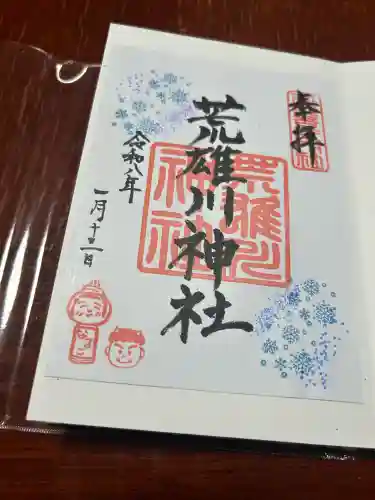 奉拝
荒雄川神社
荒雄川
神社
令和八年
一月十二日